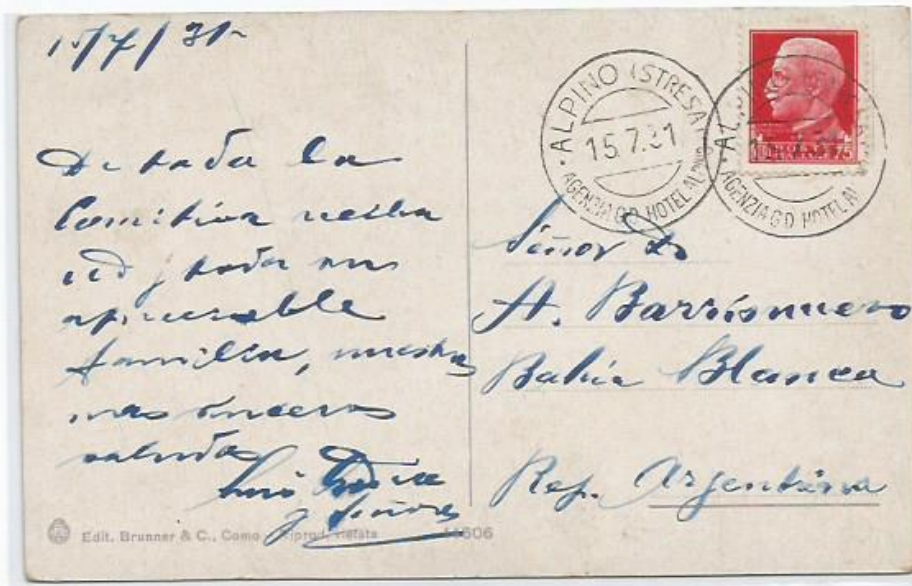 15/7/31-
De toda la
Comitiva reciba
ud y toda su
apreciable
familia, nuestros
mas sinceros
saludos
Luis
y Señora
Edit. Brunner & C., Como - Riprod. vietata
ALPINO (STRESA)
15.7.31
AGENZIA G.D. HOTEL ALPINO
ALPINO
AGENZIA G.D. HOTEL AL
Señor Dr
A. Barrionuevo
Bahia Blanca
Rep. Argentina